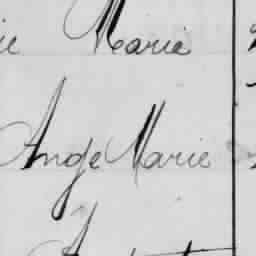 Marie
Ange Marie